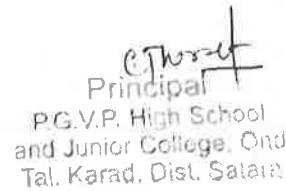 Principal
P.G.V.P. High School
and Junior College, Ond
Tal. Karad, Dist. Satara